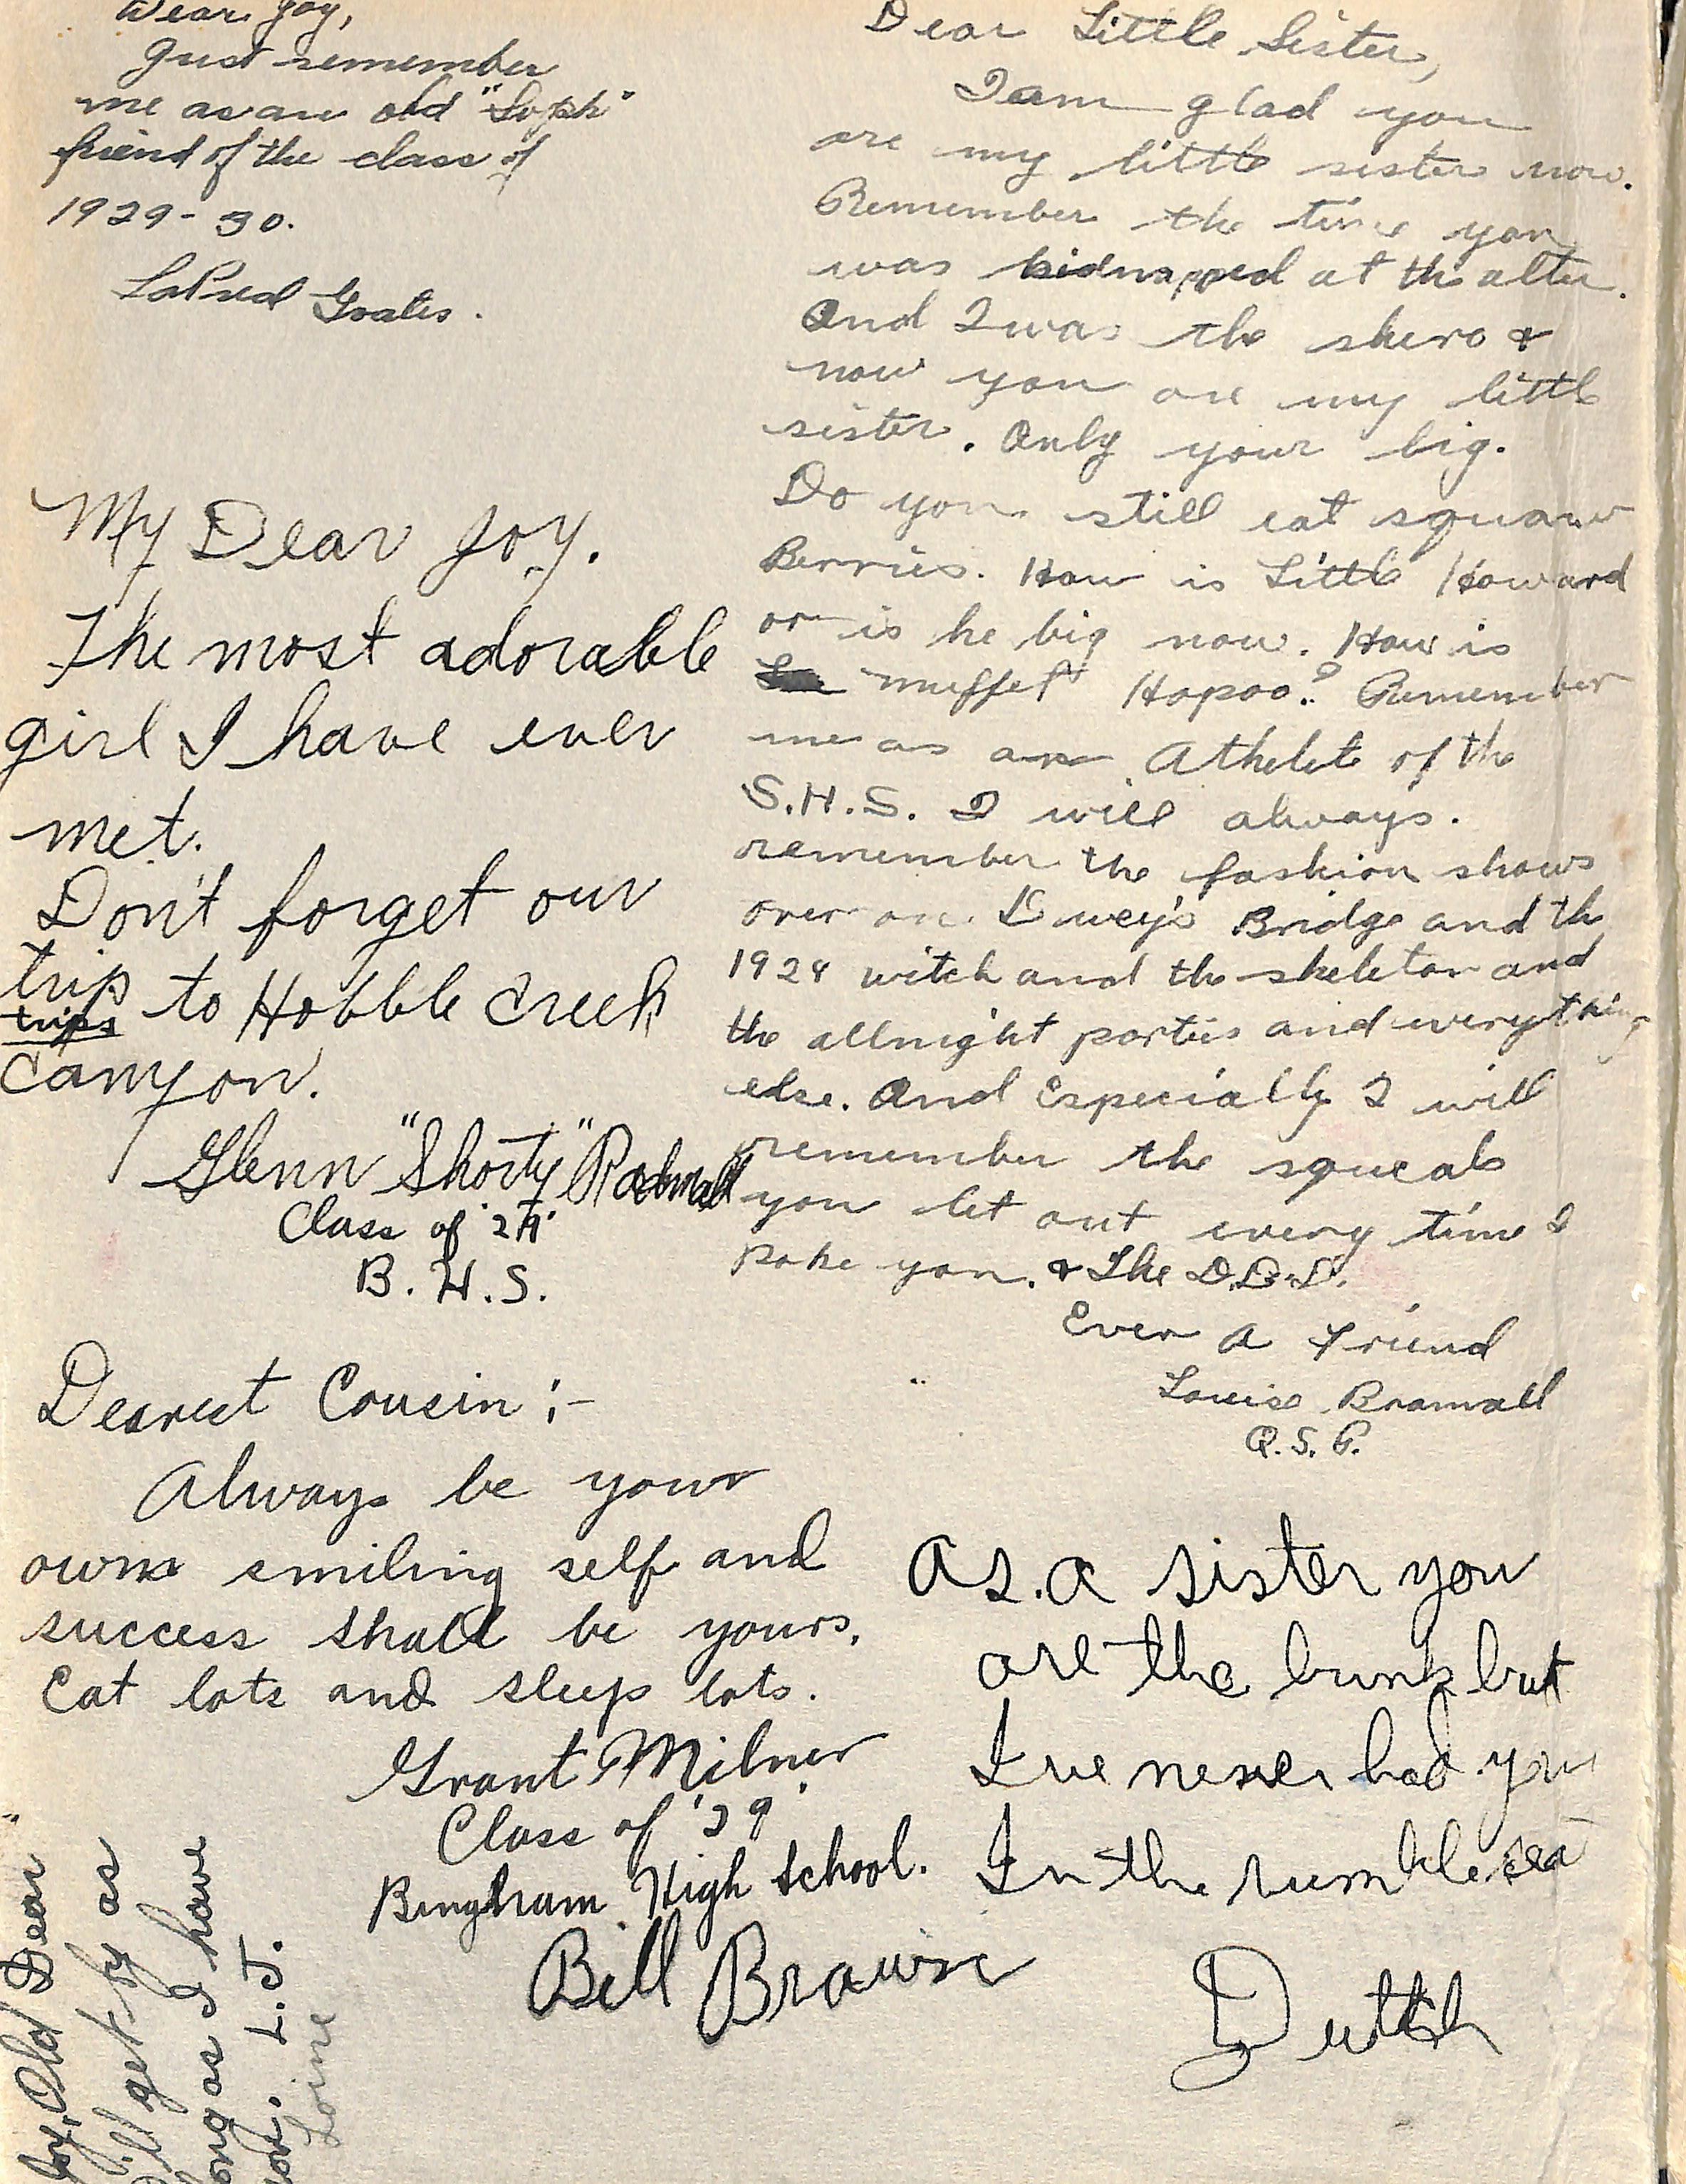 Dear Joy,
Just remember
me as an old "Soph"
friend of the class of
1929-30.
LaPreal Gates.
My Dear Joy.
The most adorable
girl I have ever
met.
Don't forget our
trip
trips to Hobble Creek
Canyon.
Glenn "Shorty"
Class of '29'
B.H.S.
Dearest Cousin:-
Always be your
own smiling self and
success shall be yours.
Eat lots and sleep lots.
Grant Milner
Class of '29'
Bingham High School.
Bill Brown
Dear Little Sister,
I am glad you
are my little sister now.
Remember the time you
was kidnapped at the alter.
And I was the shero &
now you are my little
sister. Only your big.
Do you still eat squaw
Berries. How is Little Howard
or is he big now. How is
muffet Hopoo? Remember
me as an Athelete of the
S.H.S. I will always.
remember the fashion shows
over on Dewey's Bridge and the
1924 witch and the skeleton and
the allnight parties and everything
else. And Especially I will
remember the squeals
you let out every time I
poke you. & The D.D.D.
Ever A Friend
Louise Bramall
Q.S.G.
As a sister you
are the bunk but
I've never had you
In the rumble seat
Dutch
Joy, Old Dear"
I'll get by as
long as I have
you. L.J.
Loine